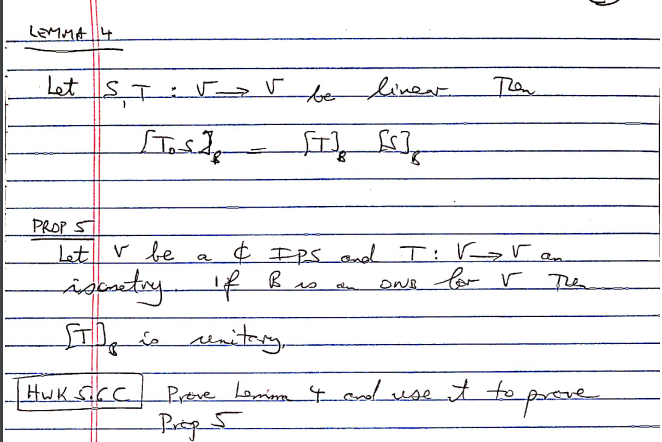 LEMMA 4
Let S, T : V → V be linear. Then
[T∘S]_B = [T]_B [S]_B
PROP 5
Let V be a ₵ IPS and T : V → V an
isometry. If B is an ONB for V Then
[T]_B is unitary.
HWK 5.6C Prove Lemma 4 and use it to prove
Prop 5